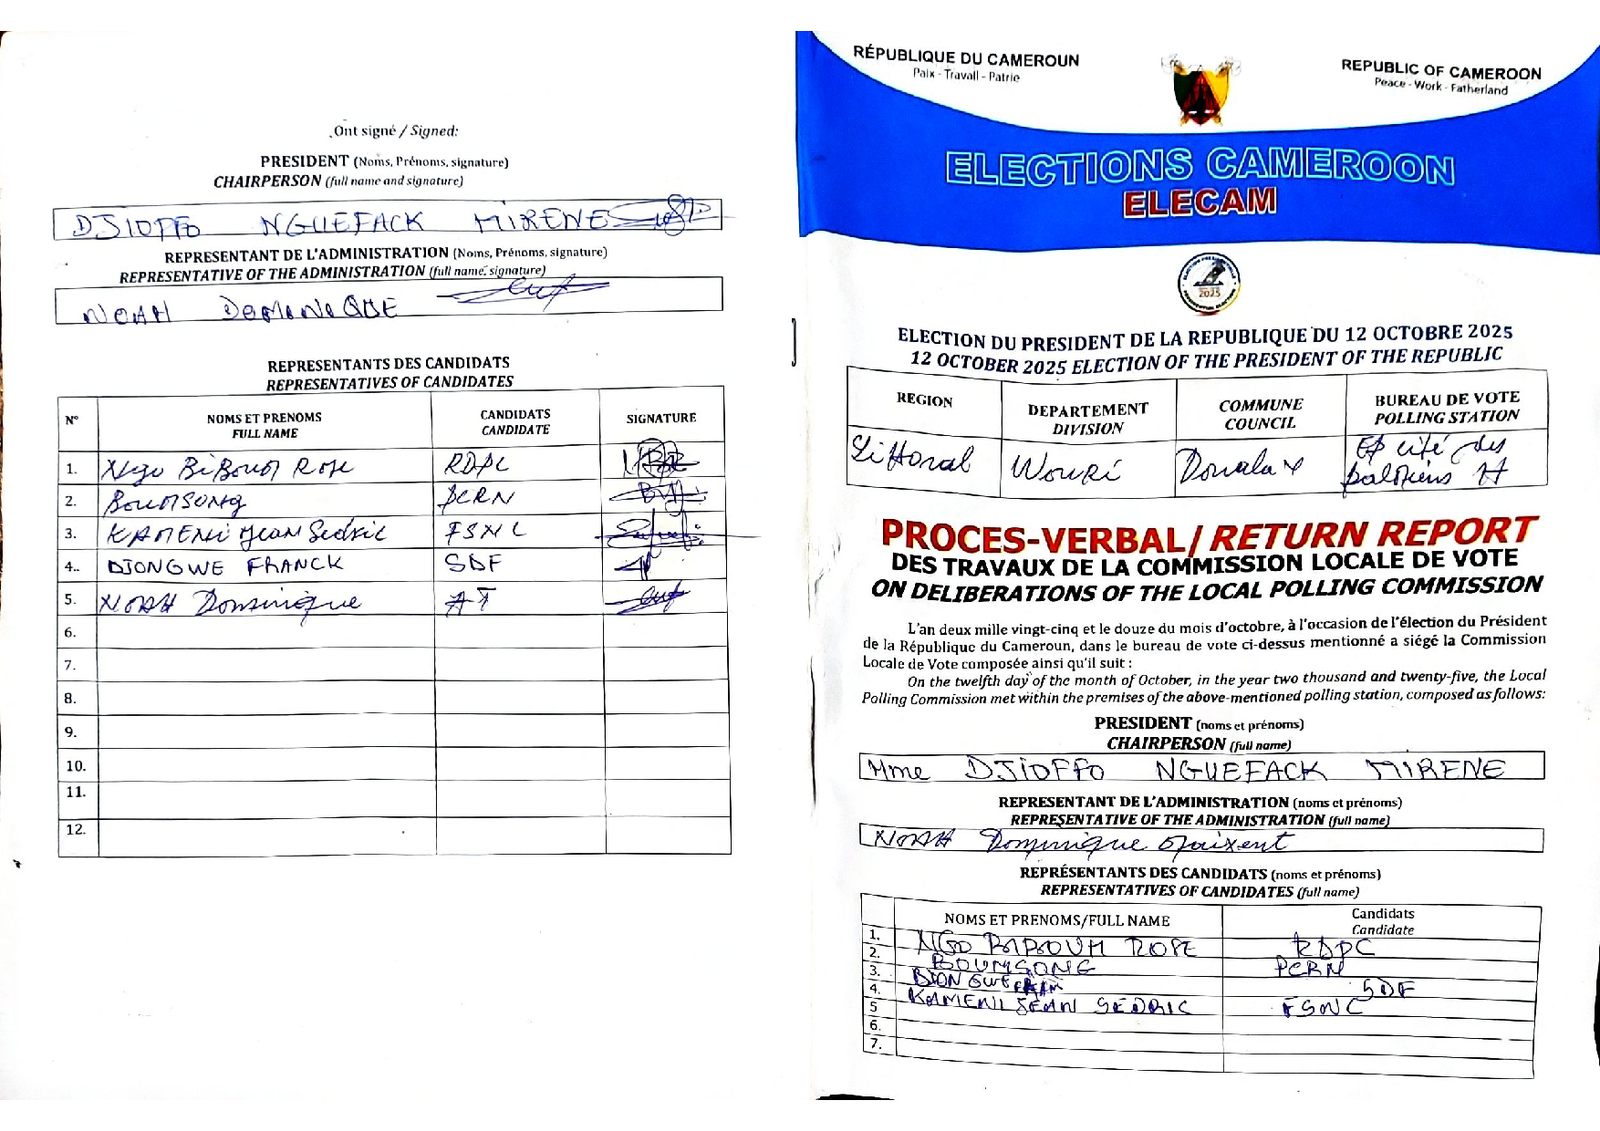 Ont signé / Signed:
PRESIDENT (Noms, Prénoms, signature)
CHAIRPERSON (full name and signature)
DJIOFFO NGUEFACK MIRENE
REPRESENTANT DE L'ADMINISTRATION (Noms, Prénoms, signature)
REPRESENTATIVE OF THE ADMINISTRATION (full name, signature)
NOAH DOMINIQUE
REPRESENTANTS DES CANDIDATS
REPRESENTATIVES OF CANDIDATES
N° NOMS ET PRENOMS FULL NAME CANDIDATS CANDIDATE SIGNATURE
1. Ngo BiBoum Rose RDPC
2. BOUMSONG PCRN
3. KAMENI Jean Sedric FSNC
4.. DJONGWE FRANCK SDF
5. NOAH Dominique AT
6.
7.
8.
9.
10.
11.
12.
RÉPUBLIQUE DU CAMEROUN
Paix - Travail - Patrie
REPUBLIC OF CAMEROON
Peace - Work - Fatherland
ELECTIONS CAMEROON
ELECAM
2025
ELECTION DU PRESIDENT DE LA REPUBLIQUE DU 12 OCTOBRE 2025
12 OCTOBER 2025 ELECTION OF THE PRESIDENT OF THE REPUBLIC
REGION DEPARTEMENT DIVISION COMMUNE COUNCIL BUREAU DE VOTE POLLING STATION
Littoral Wouri Douala EP cité des palmiers
PROCES-VERBAL/RETURN REPORT
DES TRAVAUX DE LA COMMISSION LOCALE DE VOTE
ON DELIBERATIONS OF THE LOCAL POLLING COMMISSION
L'an deux mille vingt-cinq et le douze du mois d'octobre, à l'occasion de l'élection du Président
de la République du Cameroun, dans le bureau de vote ci-dessus mentionné a siégé la Commission
Locale de Vote composée ainsi qu'il suit :
On the twelfth day of the month of October, in the year two thousand and twenty-five, the Local
Polling Commission met within the premises of the above-mentioned polling station, composed as follows:
PRESIDENT (noms et prénoms)
CHAIRPERSON (full name)
Mme DJIOFFO NGUEFACK MIRENE
REPRESENTANT DE L'ADMINISTRATION (noms et prénoms)
REPRESENTATIVE OF THE ADMINISTRATION (full name)
NOAH Dominique
REPRÉSENTANTS DES CANDIDATS (noms et prénoms)
REPRESENTATIVES OF CANDIDATES (full name)
NOMS ET PRENOMS/FULL NAME Candidats Candidate
1. NGO BIBOUM ROSE RDPC
2. BOUMSONG PCRN
3. DJONGWE SDF
4. KAMENI JEAN SEDRIC FSNC
5
6.
7.